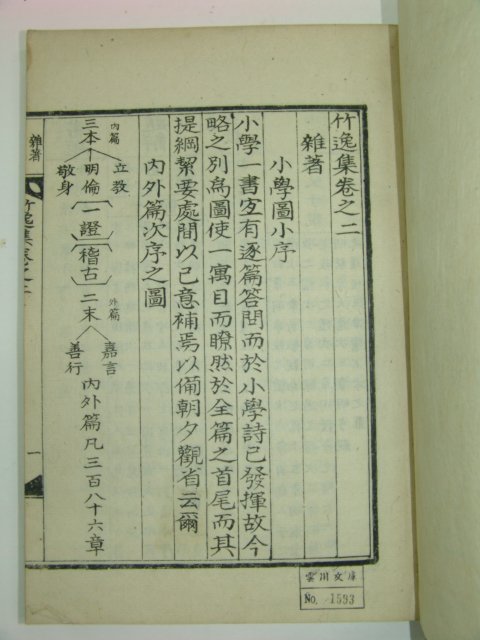 竹逸集卷之二
雜著
小學圖小序
小學一書宜有逐篇答問而於小學詩已發揮故今
略之別爲圖使一寓目而瞭然於全篇之首尾而其
提綱挈要處間以己意補焉以備朝夕觀省云爾
內外篇次序之圖
內篇
三本
立教
明倫
敬身
一證
稽古
外篇
二末
嘉言
善行
內外篇凡三百八十六章
雜著
竹逸集卷之二
一
雲川文庫
No. 1593